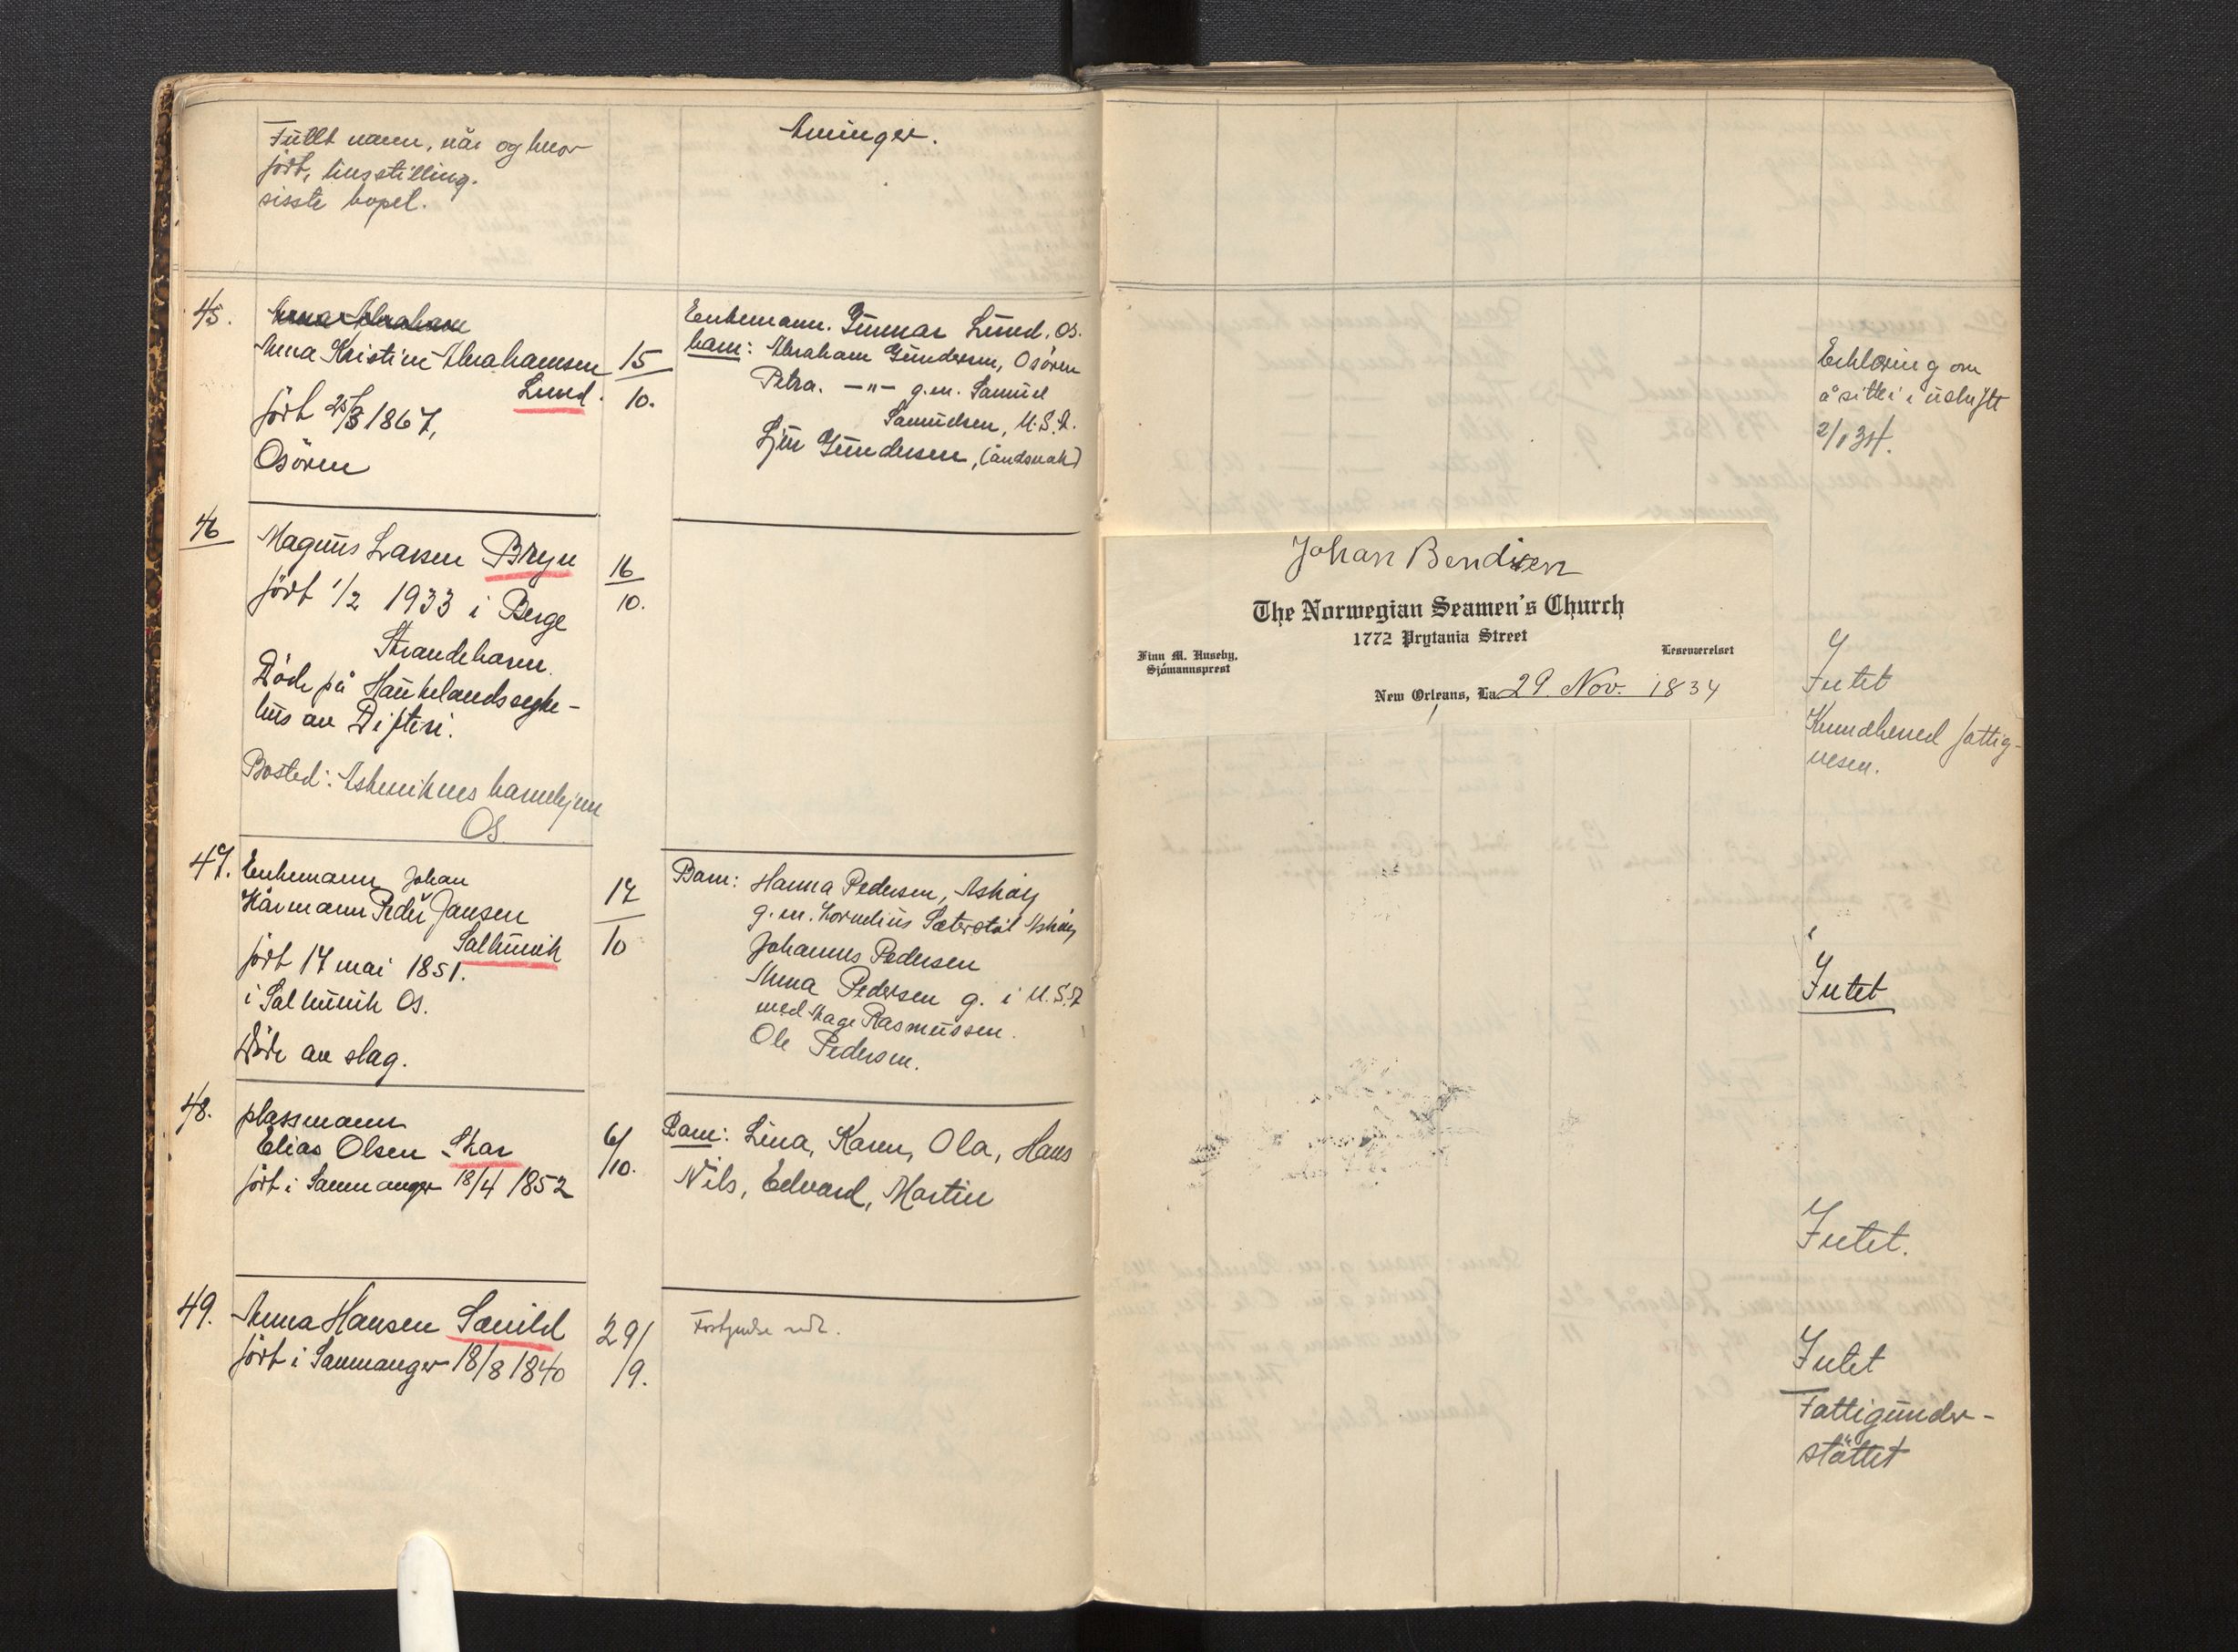 Fullt navn, når og hvor
født, livsstilling.
sisste bopel.
Arvinger.
45.
Anna Kristine Abrahamsen
Lund.
født 25/8 1867,
Osøren
15
10.
Enkemann. Gunnar Lund. Os.
barn: Abraham Gundersen, Osøren
Petra. —"— g.m. Samuel
Samuelsen, U.S.A.
Gundersen, (åndsvak)
Erklæring om
å sitte i uskift
46
Magnus Larsen Bryn
født 1/2 1933 i Berge
Strandebarm.
Døde på Haukelandssyke-
hus av Difteri.
Bosted: Askviknes barnehjem
Os.
16
10.
Intet
Kvindherred fattig-
vesen.
Johan Bendixen
The Norwegian Seamen's Church
1772 Prytania Street
Finn M. Huseby,
Sjömannsprest
Leseværelset
New Orleans, La. 29. Nov. 1834
47.
Enkemann Johan
Kårmann Peder Jansen
Salhuvik
født 17 mai 1851.
i Salhuvik Os.
Døde av slag.
17
10
Barn: Hanna Pedersen, Askøy
g.m. Kornelius Sæterstøl Askøy
Johannes Pedersen
Anna Pedersen g. i U.S.A
med Aage Rasmussen.
Ole Pedersen.
Intet
48.
plassmann
Elias Olsen Skar
født i Samnanger 18/4 1852
6/
/10.
Barn: Lina, Karen, Ola, Hans
Nils, Edvard, Martin
Intet.
49.
Anna Hansen Sævild
født i Samnanger 18/8 1840
29/
/9.
Intet
Fattigunder-
støttet